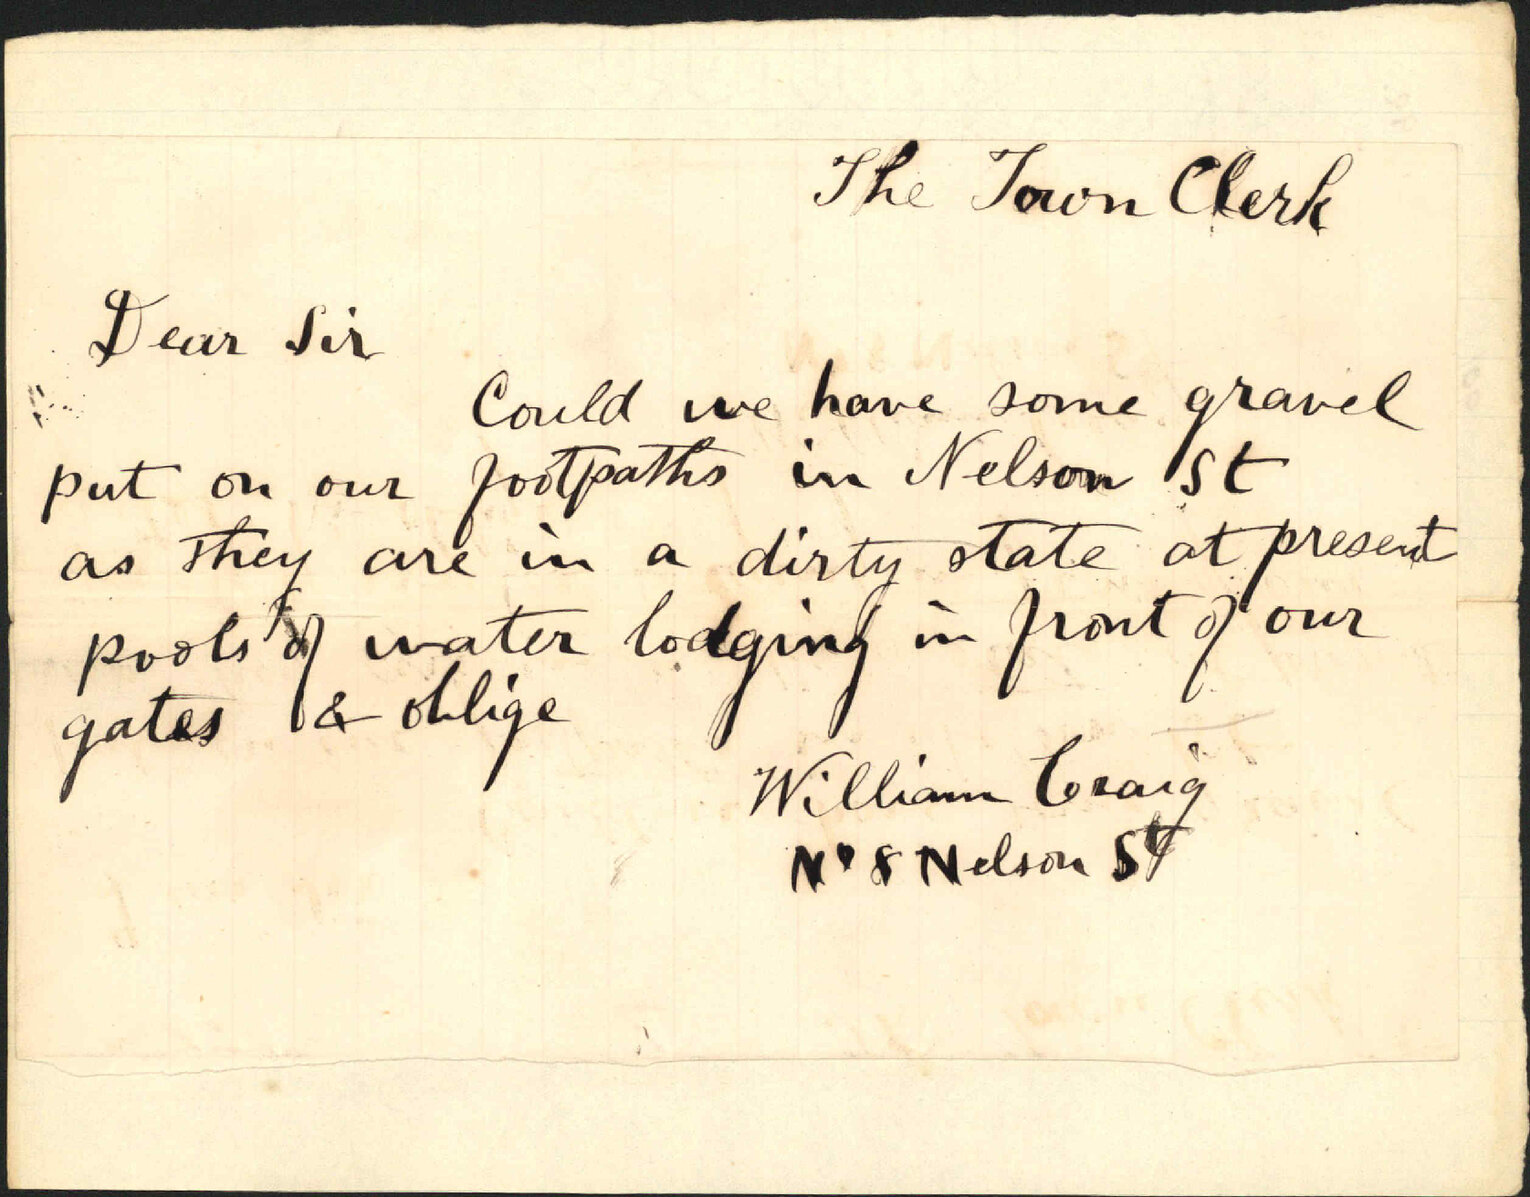 The Town Clerk
Dear Sir
Could we have some gravel
put on our footpaths in Nelson St
as they are in a dirty state at present
pools of water lodging in front of our
gates & oblige
William Craig
No 8 Nelson St